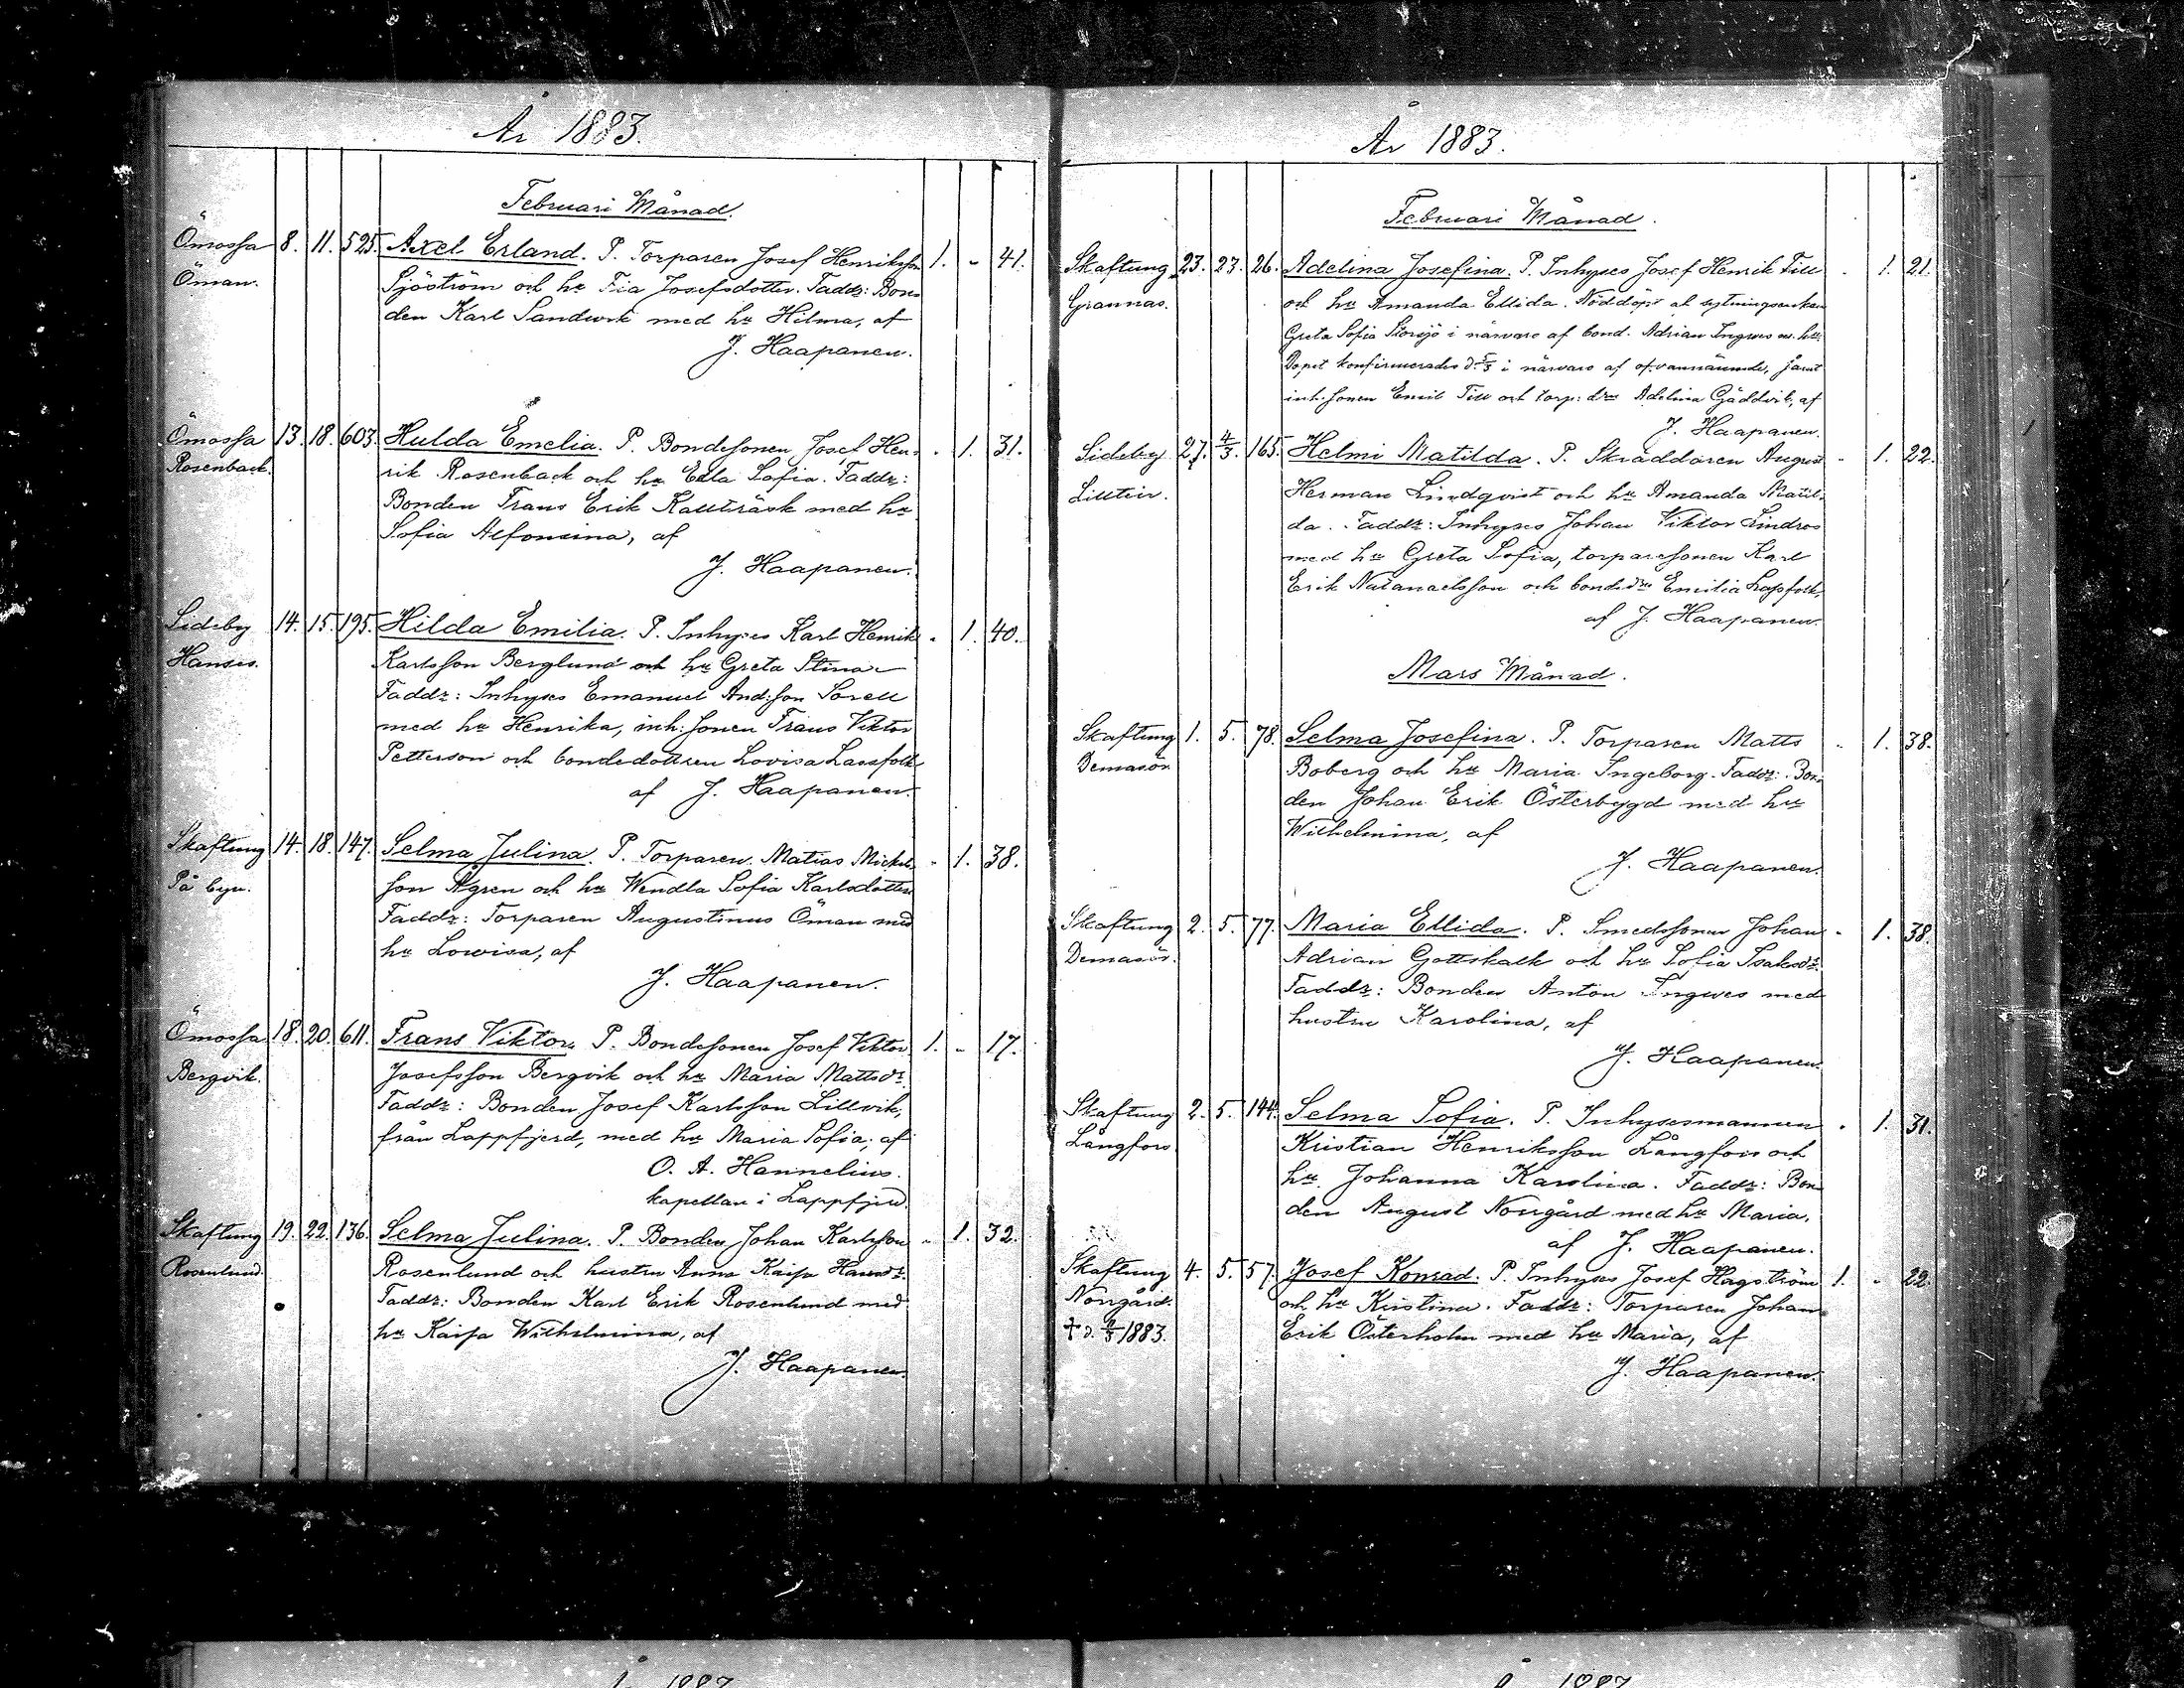 År 1883.
Februari Månad.
Ömossa 8. 11. 525. Axel Erland. P. Torparen Josef Henriksson 1. - 41.
Öman. Sjöström och hu Fia Josefsdotter. Faddr: Bon-
den Karl Sandwik med hu Hilma, af
J. Haapanen.
Ömossa 13. 18. 603. Hulda Emelia. P. Bondesonen Josef Hen- - 1. 31.
Rosenback. rik Rosenback och hu Eda Sofia. Faddr:
Bonden Frans Erik Kallträsk med hu
Sofia Alfonsina, af
J. Haapanen.
Sideby 14. 15. 195. Hilda Emilia. P. Inhyses Karl Henrik - 1. 40.
Hanses. Karlsson Berglund och hu Greta Stina
Faddr: Inhyses Emanuel And:son Sorell
med hu Henrika, inh: sonen Frans Viktor
Petterson och bondedottren Lovisa Lassfolk
af J. Haapanen.
Skaftung 14. 18. 147. Selma Julina. P. Torparen Matias Mickel- - 1. 38.
På byn. son Ågren och hu Wendla Sofia Karlsdotter
Faddr: Torparen Augustinus Öman med
hu Lowisa, af
J. Haapanen.
Ömossa 18. 20. 611. Frans Viktor. P. Bondesonen Josef Viktor 1. - 17.
Bergvik. Josefsson Bergvik och hu Maria Mattsdr
Faddr: Bonden Josef Karlsson Lillvik,
från Lappfjerd, med hu Maria Sofia, af
O. A. Hannelius.
kapellan i Lappfjerd.
Skaftung 19. 22. 136. Selma Julina. P. Bonden Johan Karlsson - 1. 32.
Rosenlund. Rosenlund och hustru Anna Kaisa Hansdr.
Faddr: Bonden Karl Erik Rosenlund med
hu Kaisa Wilhelmina, af
J. Haapanen.
År 1883.
Februari Månad.
Skaftung 23. 23. 26. Adelina Josefina. P. Inhyses Josef Henrik Till - 1. 21.
Grannas. och hu Amanda Ellida. Nöddöpt af sytningsenkan
Greta Sofia Storsjö i närvaro af bond. Adrian Ingwes m. hu
Dopet konfirmerades d. 5/3 i närvaro af ofvannämnde, jämt
inh. sonen Emil Till och torp: drn Adelina Gäddvik, af
J. Haapanen.
Sideby 27. 4/3. 165. Helmi Matilda. P. Skräddaren August - 1. 22.
Herman Lindqvist och hu Amanda Matil-
da. Faddr: Inhyses Johan Viktor Lindros
med hu Greta Sofia, torparesonen Karl
Erik Natanaelsson och bondedrn Emilia Lassfolk,
af J. Haapanen.
Mars Månad.
Skaftung 1. 5. 78. Selma Josefina. P. Torparen Matts - 1. 38.
Demasör Boberg och hu Maria Ingeborg. Faddr: Bon-
den Johan Erik Österbygd med hu
Wilhelmina, af
J. Haapanen.
Skaftung 2. 5. 77. Maria Ellida. P. Smedssonen Johan - 1. 38.
Demasör. Adrian Gottskalk och hu Sofia Isaksdr.
Faddr: Bonden Anton Ingwes med
hustru Karolina, af
J. Haapanen.
Skaftung 2. 5. 144. Selma Sofia. P. Inhysesmannen - 1. 31.
Långfors Kristian Henriksson Långfors och
hu. Johanna Karolina. Faddr: Bon-
den August Norrgård med hu Maria,
af J. Haapanen.
Skaftung 4. 5. 57. Josef Konrad. P. Inhyses Josef Hagström 1. - 22.
Norrgård. och hu Kristina. Faddr: Torparen Johan
† d. 1883. Erik Österholm med hu Maria, af
J. Haapanen.